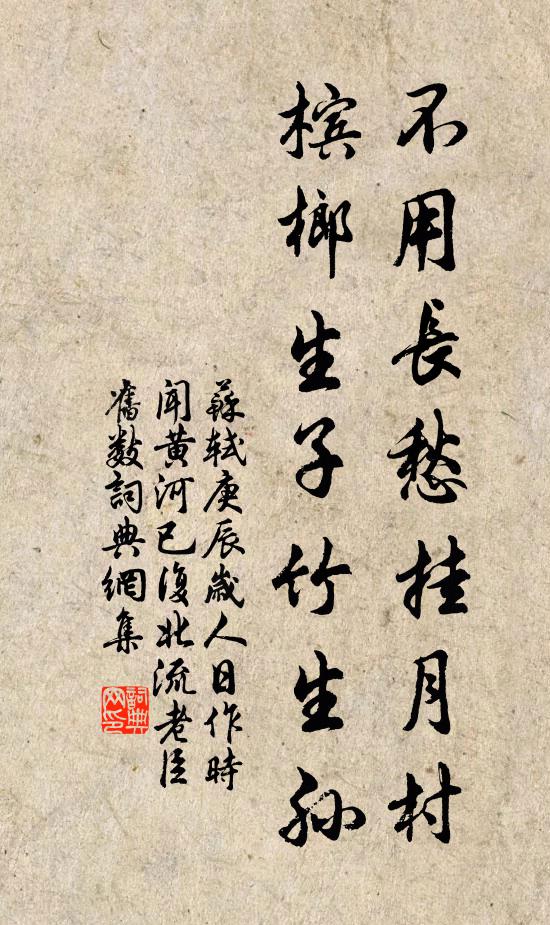 不用長愁挂月村
檳榔生子竹生孫
蘇軾庚辰歲人日作時
聞黄河已復北流老臣
舊數詞典網集
詞典
网印